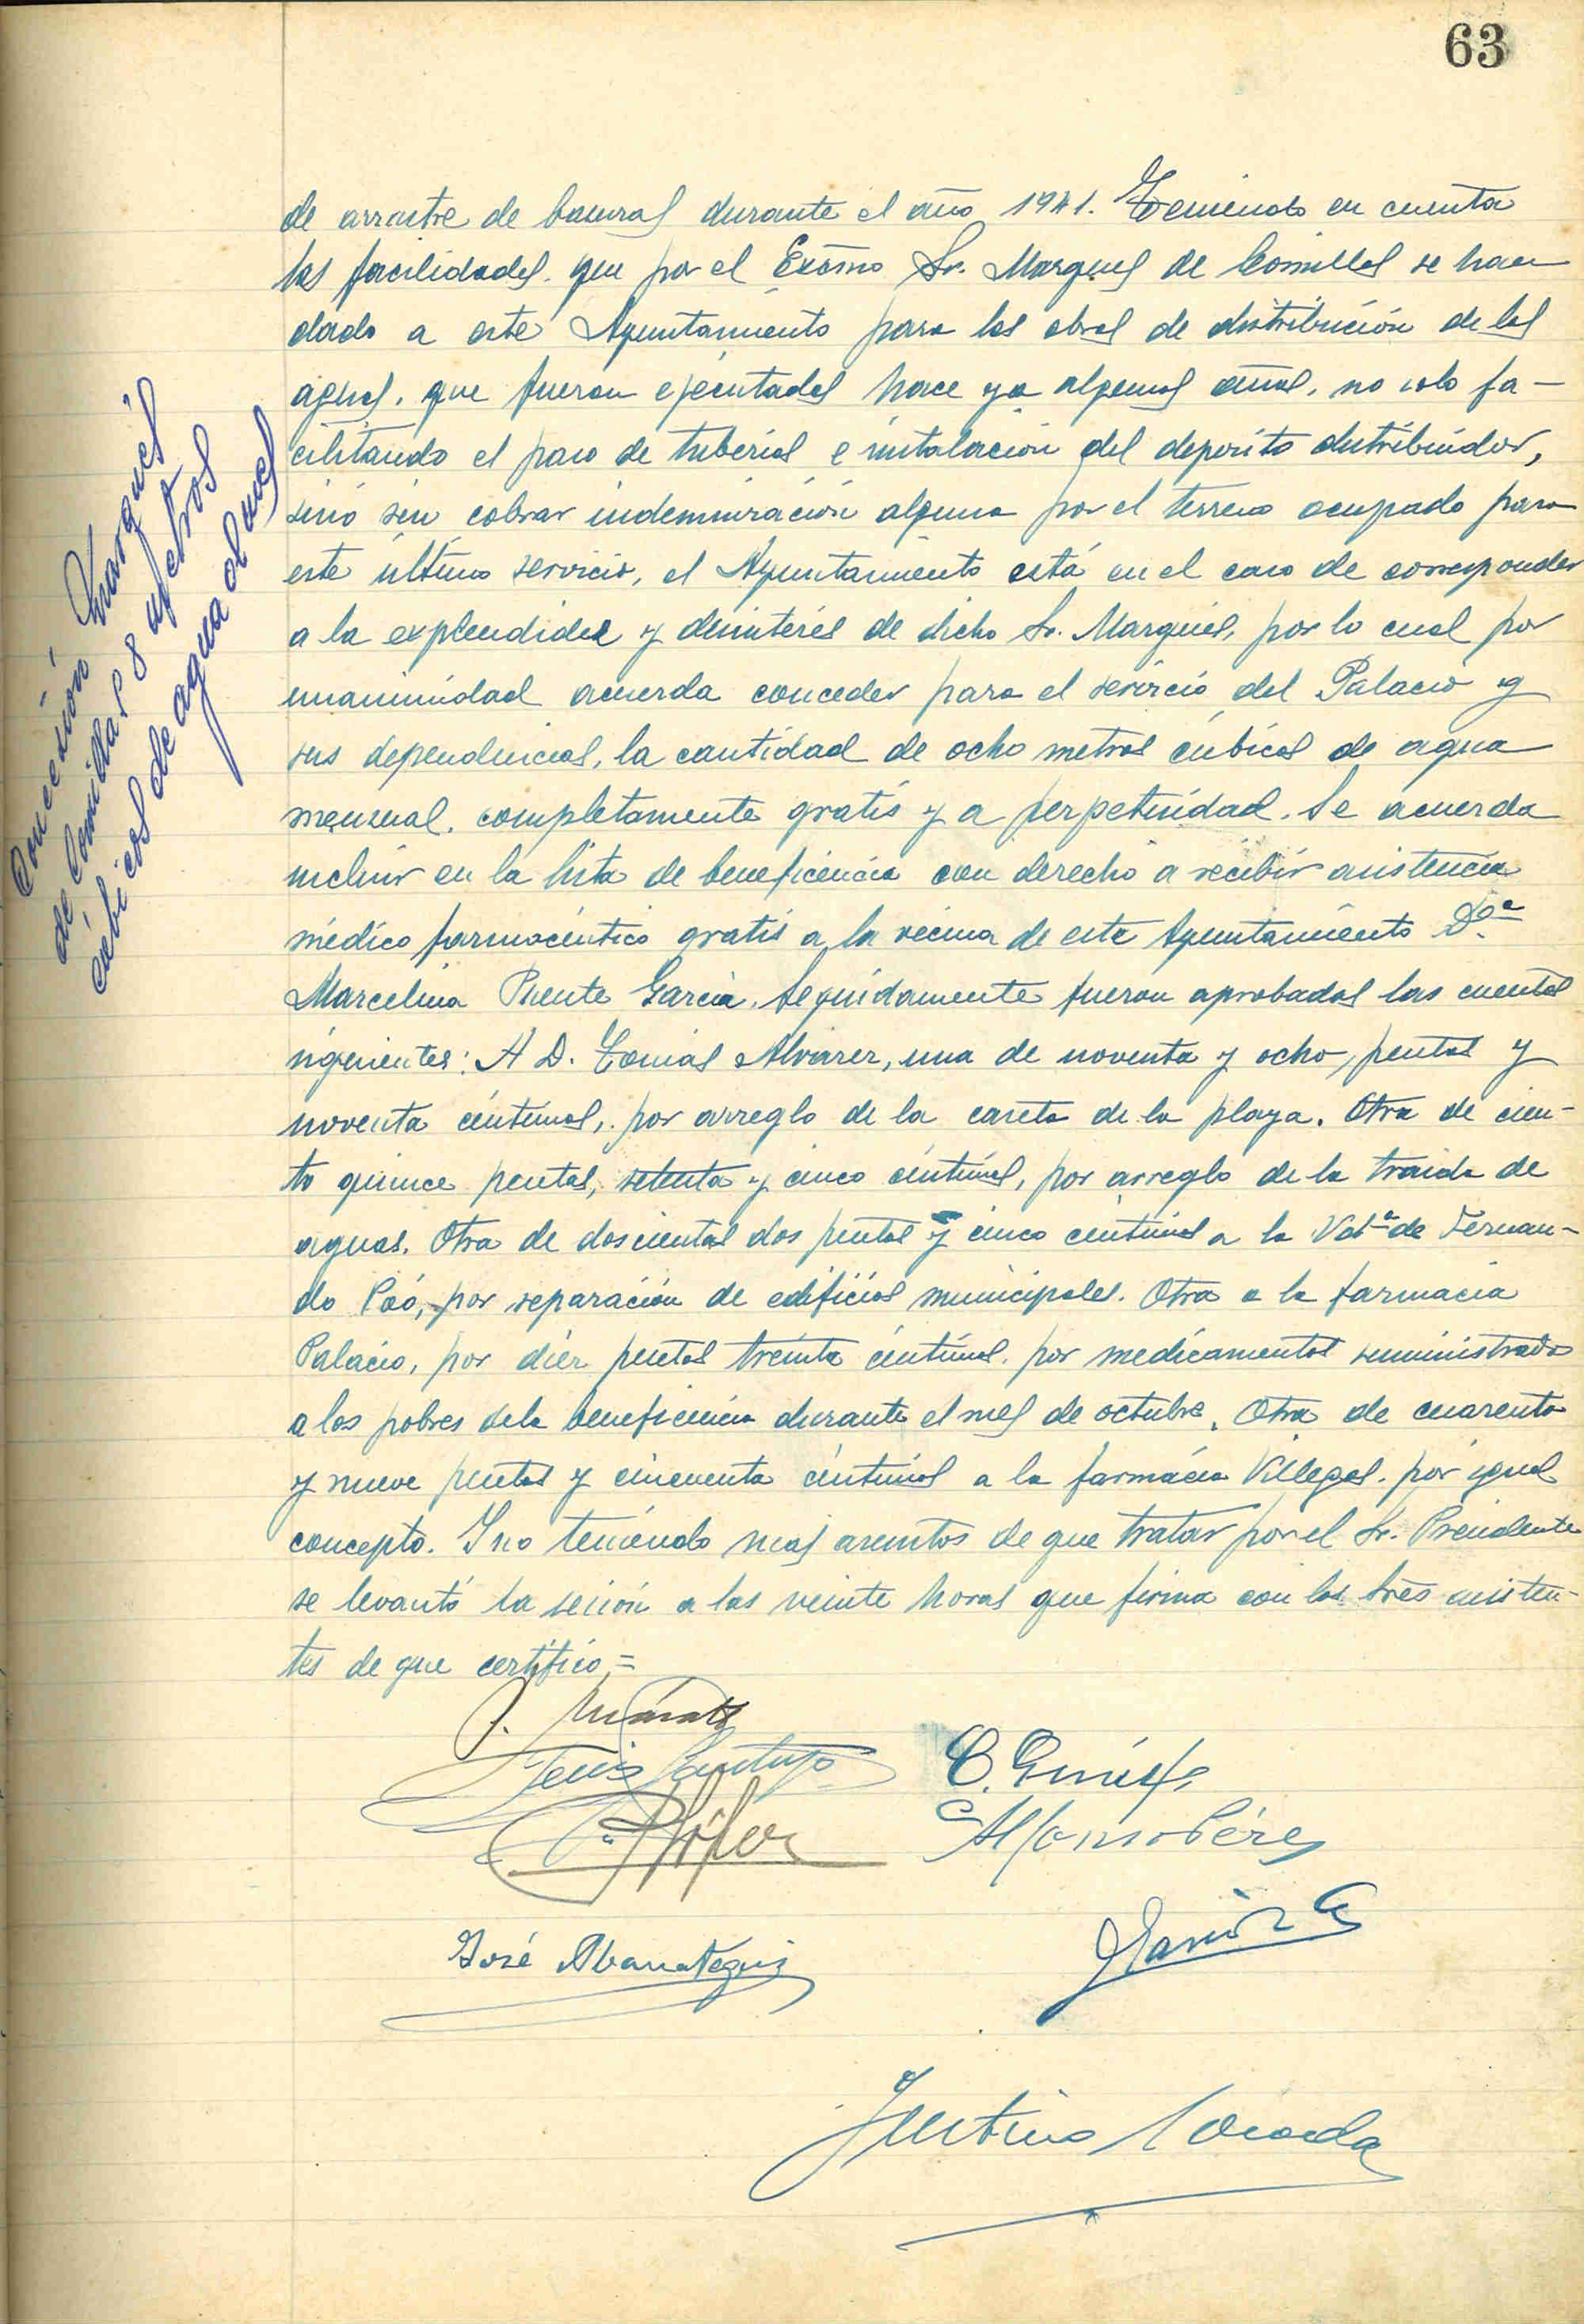 63
de arrastre de basuras durante el año 1941. Teniendo en cuenta
las facilidades que por el Excmo Sr. Marques de Comillas se han
dado a este Ayuntamiento para las obras de distribución de las
aguas, que fueron ejecutadas hace ya algunos años, no solo fa-
cilitando el paso de tuberias e instalación del deposito distribuidor,
sinó sin cobrar indemnización alguna por el terreno ocupado para
este último servicio, el Ayuntamiento está en el caso de corresponder
a la explendidez y desinterés de dicho Sr. Marqués, por lo cual por
unanimidad acuerda conceder para el servicio del Palacio y
sus dependencias, la cantidad de ocho metros cúbicos de agua
mensual, completamente gratis y a perpetuidad. Se acuerda
incluir en la lista de beneficencia con derecho a recibir asistencia
médico farmacéutica gratis a la vecina de este Ayuntamiento Dª
Marcelina Puente García. Seguidamente fueron aprobadas las cuentas
siguientes: A D. Tomás Alvarez, una de noventa y ocho pesetas y
noventa céntimos, por arreglo de la caseta de la playa. Otra de cien-
to quince pesetas, setenta y cinco céntimos, por arreglo de la traida de
aguas. Otra de doscientas dos pesetas y cinco centimos a la Vdª de Fernan-
do Poó, por reparación de edificios municipales. Otra a la farmacia
Palacio, por diez pesetas treinta céntimos, por medicamentos suministrados
a los pobres de la beneficencia durante el mes de octubre. Otra de cuarenta
y nueve pesetas y cincuenta céntimos a la farmacia Villegas, por igual
concepto. Y no teniendo mas asuntos de que tratar por el Sr. Presidente
se levantó la sesión a las veinte horas que firma con los tres asisten-
tes de que certifico =
Concesión Marqués
de Comillas 8 metros
cubicos de agua al mes
Alfonso Pérez
José Abarrategui